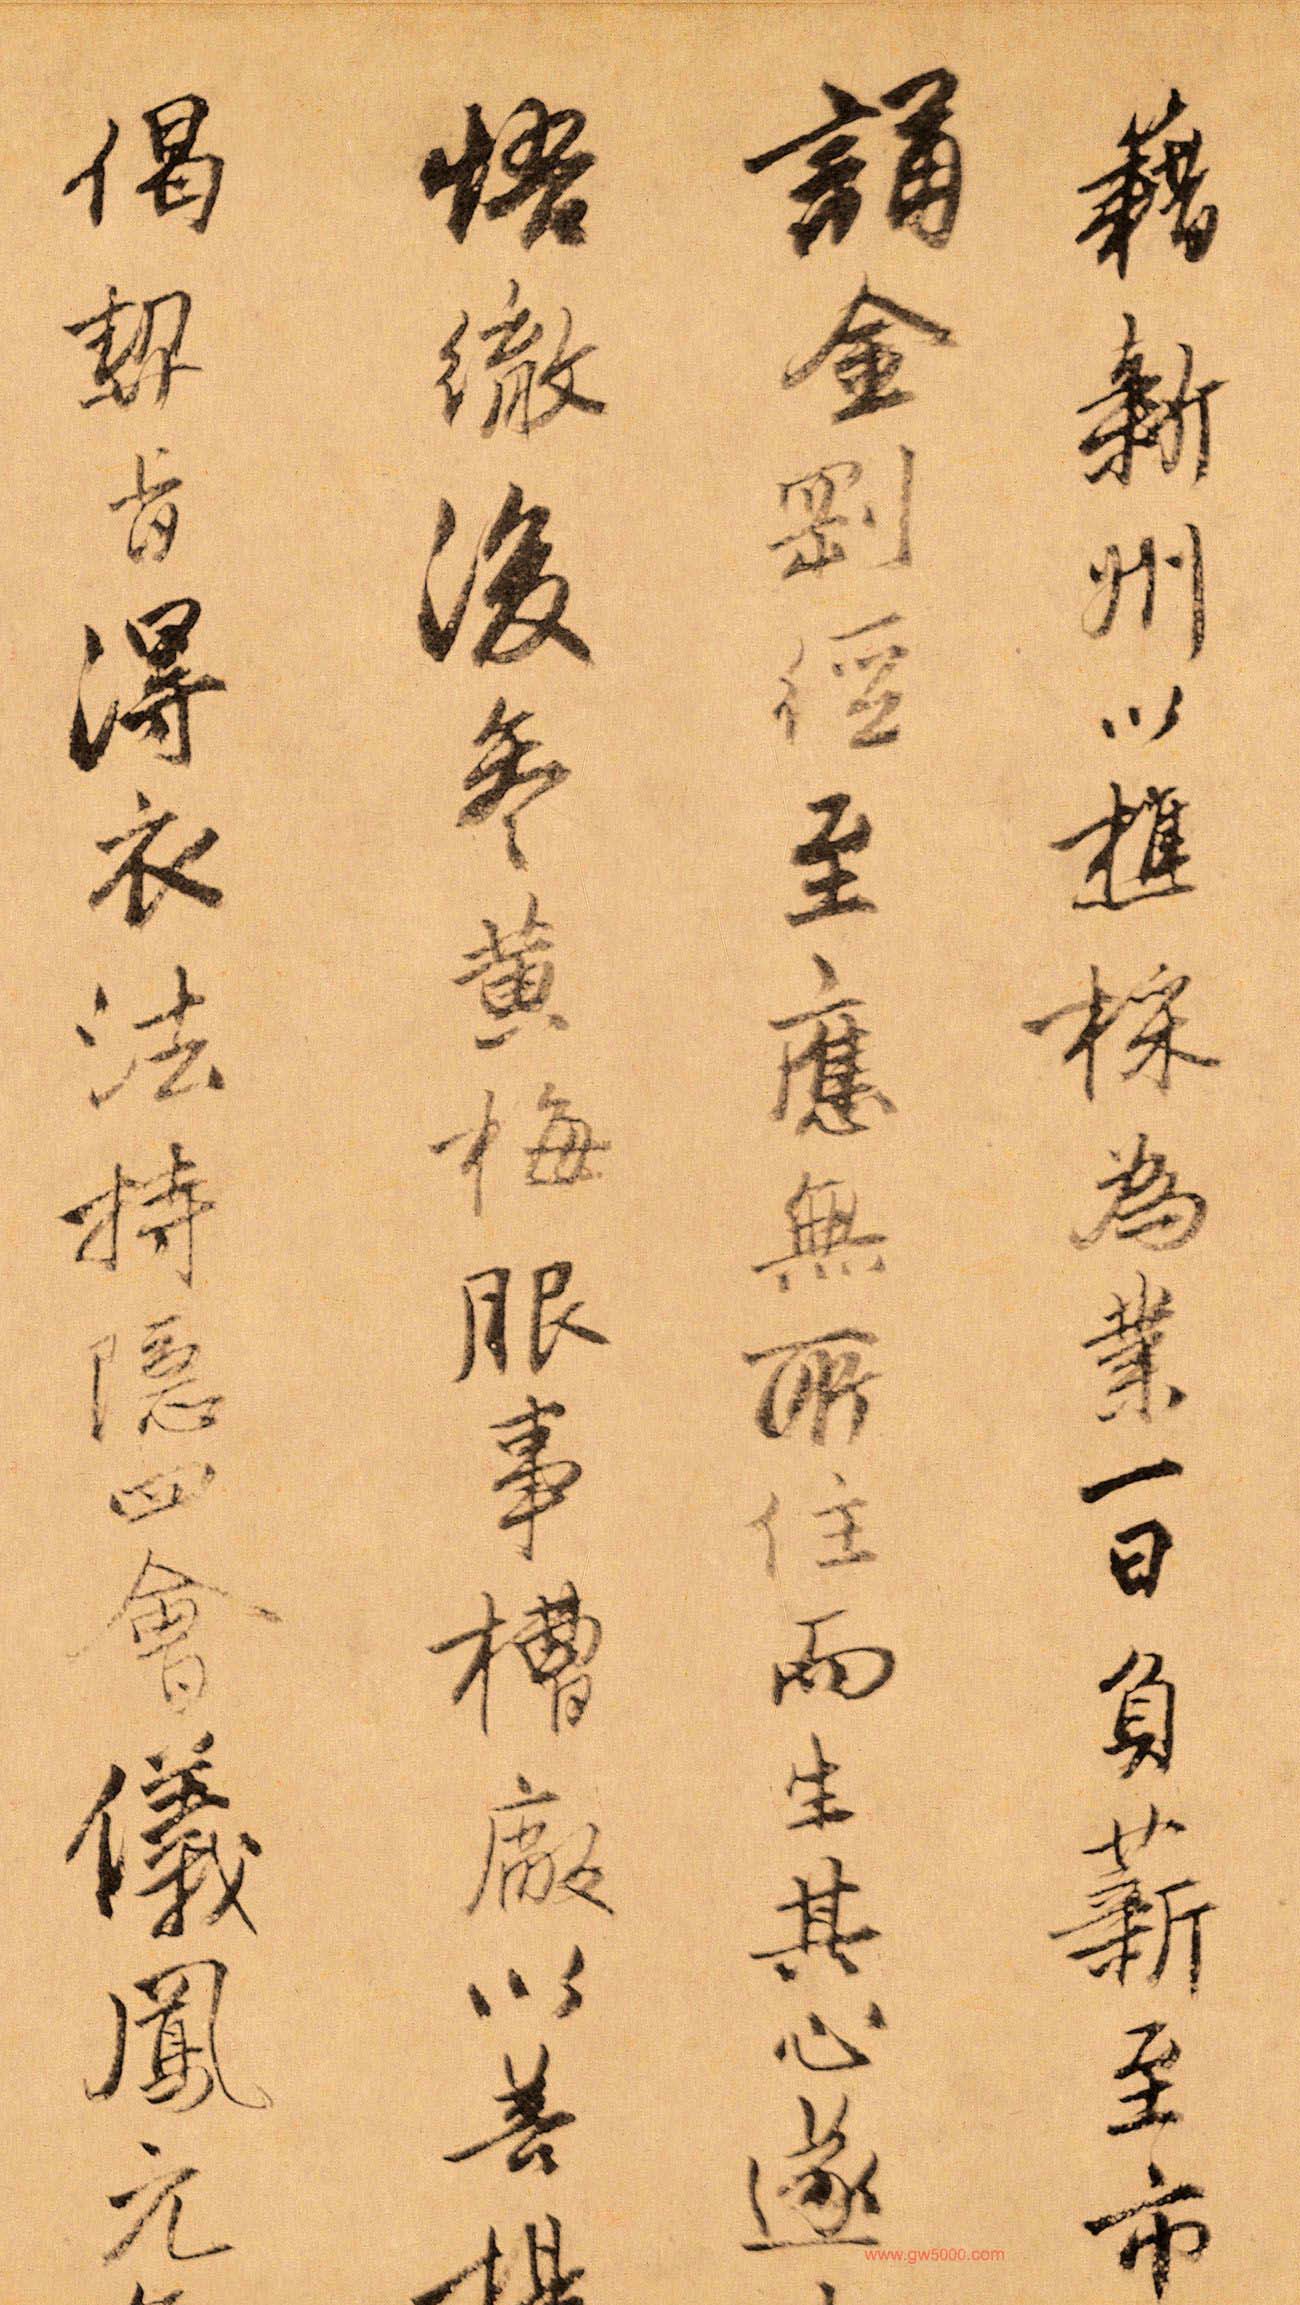 藉新州以樵採為業一日負薪至市
誦金剛經至應無所住而生其心遂
悟徹後參黃梅服事槽廠以菩提
偈契旨得衣法持隱四會儀鳳元
www.gw5000.com